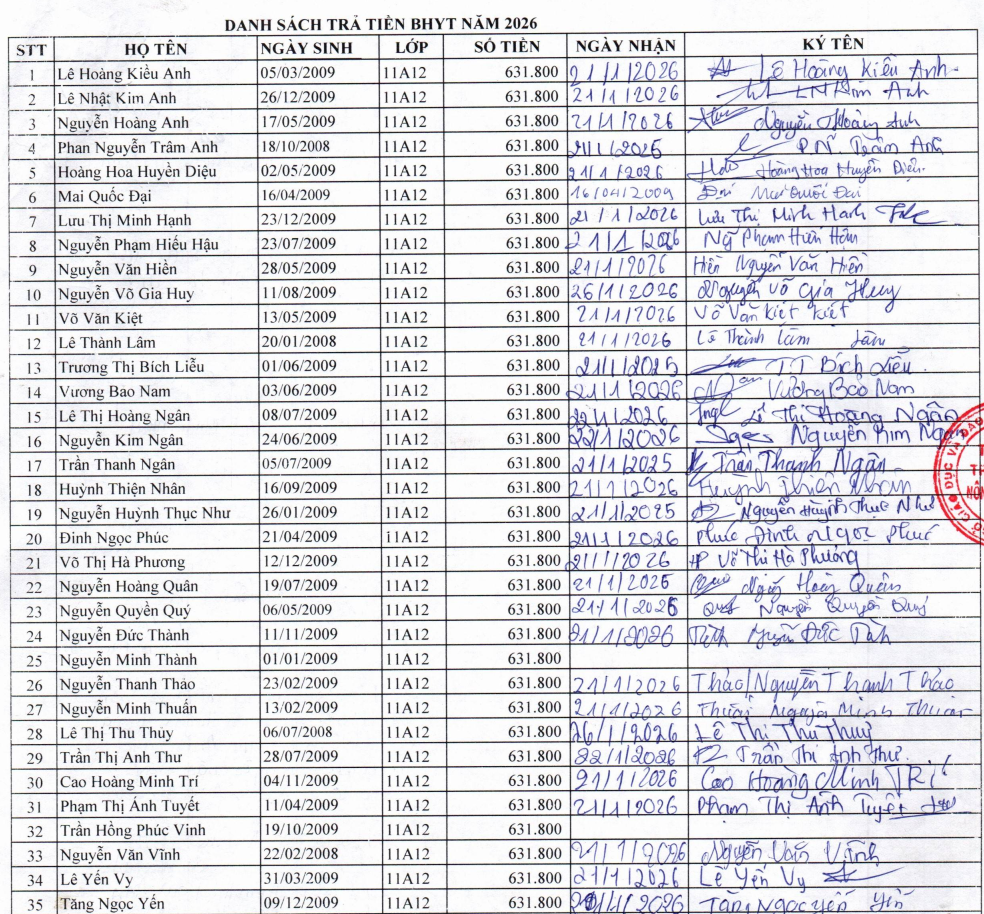 DANH SÁCH TRẢ TIỀN BHYT NĂM 2026
STT HỌ TÊN NGÀY SINH LỚP SỐ TIỀN NGÀY NHẬN KÝ TÊN
1 Lê Hoàng Kiều Anh 05/03/2009 11A12 631.800 21/1/2026 Lê Hoàng Kiều Anh
2 Lê Nhật Kim Anh 26/12/2009 11A12 631.800 21/1/2026 LN Kim Anh
3 Nguyễn Hoàng Anh 17/05/2009 11A12 631.800 21/1/2026 Nguyễn Hoàng Anh
4 Phan Nguyễn Trâm Anh 18/10/2008 11A12 631.800 21/1/2026 PN Trâm Anh
5 Hoàng Hoa Huyền Diệu 02/05/2009 11A12 631.800 21/1/2026 Hoàng Hoa Huyền Diệu
6 Mai Quốc Đại 16/04/2009 11A12 631.800 16/04/2009 Đại Mai Quốc Đại
7 Lưu Thị Minh Hạnh 23/12/2009 11A12 631.800 21/1/2026 Lưu Thị Minh Hạnh
8 Nguyễn Phạm Hiếu Hậu 23/07/2009 11A12 631.800 21/1/2026 Ng Phạm Hiếu Hậu
9 Nguyễn Văn Hiền 28/05/2009 11A12 631.800 21/1/2026 Hiền Nguyễn Văn Hiền
10 Nguyễn Võ Gia Huy 11/08/2009 11A12 631.800 26/1/2026 Nguyễn Võ Gia Huy
11 Võ Văn Kiệt 13/05/2009 11A12 631.800 21/1/2026 Võ Văn Kiệt Kiệt
12 Lê Thành Lâm 20/01/2008 11A12 631.800 21/1/2026 Lê Thành Lâm Lâm
13 Trương Thị Bích Liễu 01/06/2009 11A12 631.800 21/1/2025 TT Bích Liễu
14 Vương Bao Nam 03/06/2009 11A12 631.800 21/1/2026 Vương Bảo Nam
15 Lê Thị Hoàng Ngân 08/07/2009 11A12 631.800 22/1/2026 Lê Thị Hoàng Ngân
16 Nguyễn Kim Ngân 24/06/2009 11A12 631.800 22/1/2026 Nguyễn Kim Ngân
17 Trần Thanh Ngân 05/07/2009 11A12 631.800 21/1/2025 Trần Thanh Ngân
18 Huỳnh Thiện Nhân 16/09/2009 11A12 631.800 21/1/2026 Huỳnh Thiện Nhân
19 Nguyễn Huỳnh Thục Như 26/01/2009 11A12 631.800 21/1/2025 Nguyễn Huỳnh Thục Như
20 Đinh Ngọc Phúc 21/04/2009 11A12 631.800 21/1/2026 Phúc Đinh Ngọc Phúc
21 Võ Thị Hà Phương 12/12/2009 11A12 631.800 21/1/2026 Võ Thị Hà Phương
22 Nguyễn Hoàng Quân 19/07/2009 11A12 631.800 21/1/2026 Nguyễn Hoàng Quân
23 Nguyễn Quyền Quý 06/05/2009 11A12 631.800 21/1/2026 Quý Nguyễn Quyền Quý
24 Nguyễn Đức Thành 11/11/2009 11A12 631.800 21/1/2026 Nguyễn Đức
25 Nguyễn Minh Thành 01/01/2009 11A12 631.800
26 Nguyễn Thanh Thảo 23/02/2009 11A12 631.800 21/1/2026 Thảo/Nguyễn Thanh Thảo
27 Nguyễn Minh Thuấn 13/02/2009 11A12 631.800 21/1/2026 Thuấn Nguyễn Minh Thuấn
28 Lê Thị Thu Thủy 06/07/2008 11A12 631.800 26/1/2026 Lê Thị Thu Thuỷ
29 Trần Thị Anh Thư 28/07/2009 11A12 631.800 22/1/2026 Trần Thị Anh Thư
30 Cao Hoàng Minh Trí 04/11/2009 11A12 631.800 21/1/2026 Cao Hoàng Minh TRí
31 Phạm Thị Ánh Tuyết 11/04/2009 11A12 631.800 21/1/2026 Phạm Thị Ánh Tuyết
32 Trần Hồng Phúc Vinh 19/10/2009 11A12 631.800
33 Nguyễn Văn Vĩnh 22/02/2008 11A12 631.800 21/1/2026 Nguyễn Văn Vĩnh
34 Lê Yến Vy 31/03/2009 11A12 631.800 21/1/2026 Lê Yến Vy
35 Tăng Ngọc Yến 09/12/2009 11A12 631.800 21/1/2026 Tăng Ngọc Yến Yến